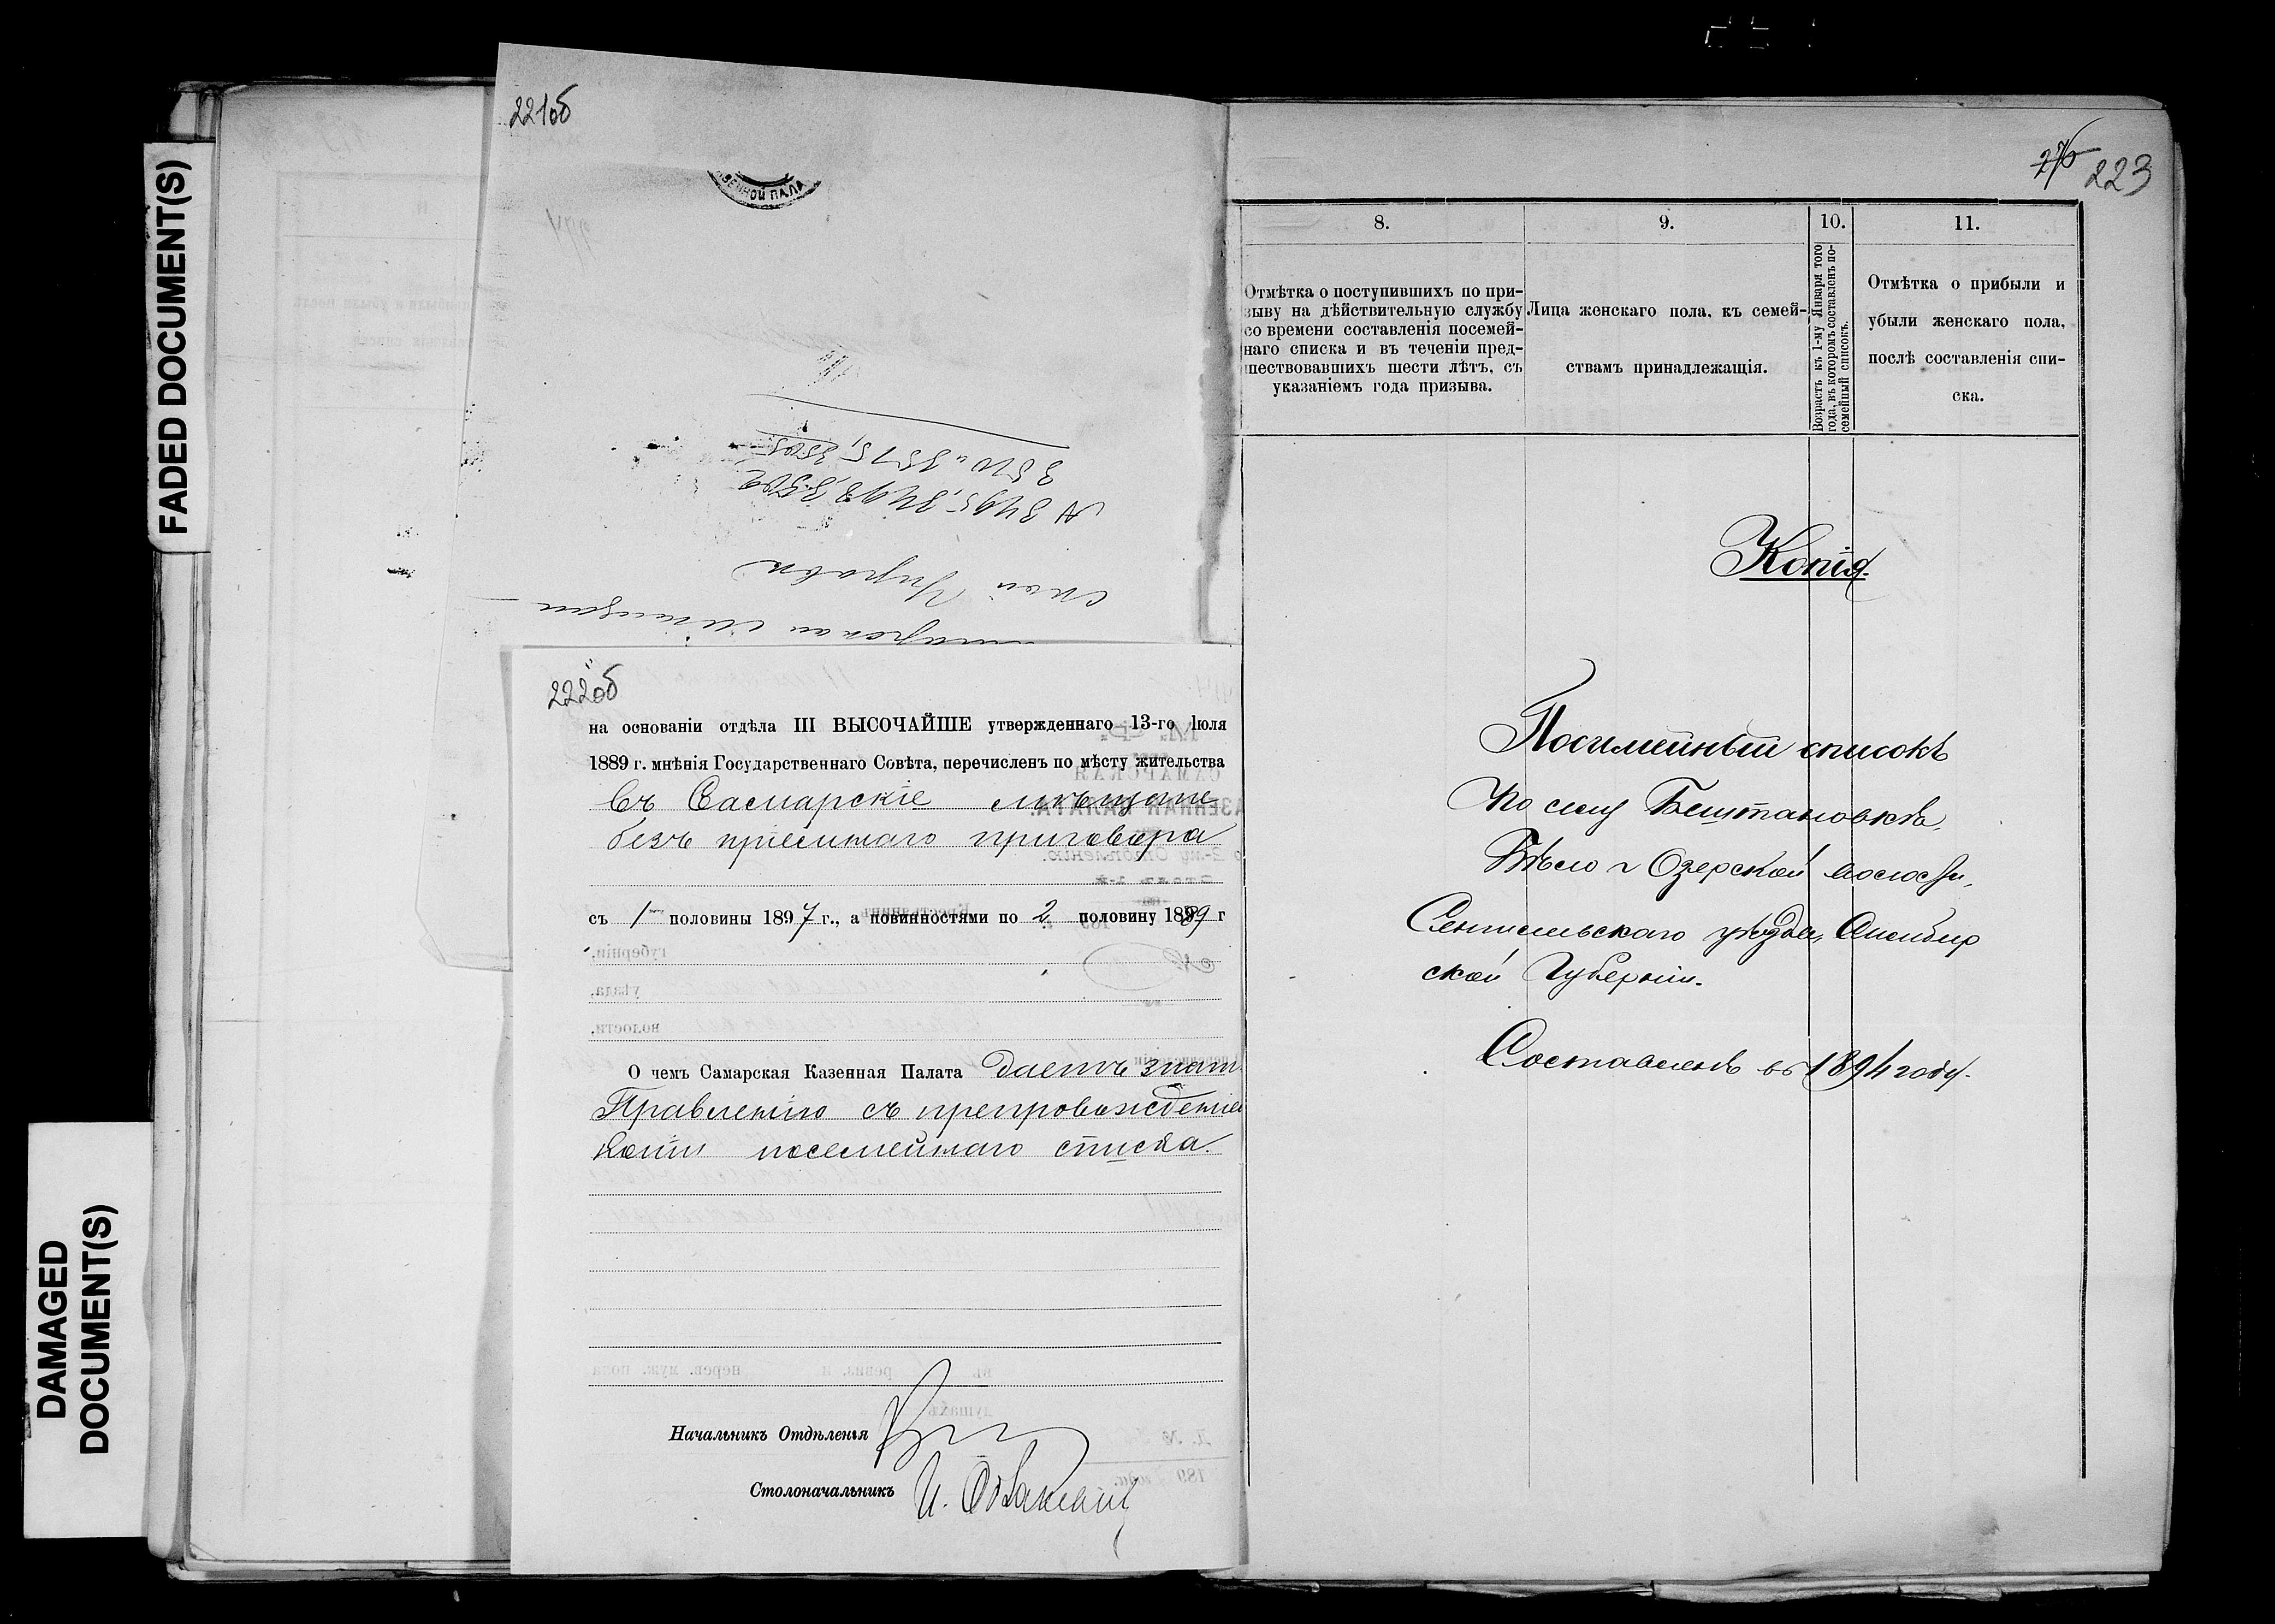 FADED DOCUMENT(S)
DAMAGED
DOCUMENT(S)
221об
ЗЕННОЙ ПАЛА
№ 3495, 3498, 3502
3510 и 3515, 3505
ской Управы
222об
на основаніи отдѣла III ВЫСОЧАЙШЕ утвержденнаго 13-го Іюля
1889 г. мнѣнія Государственнаго Совѣта, перечисленъ по мѣсту жительства
въ Самарскіе мѣщане
безъ пріемнаго приговора
съ 1 половины 1897 г., а повинностями по 2 половину 1899 г
О чемъ Самарская Казенная Палата даетъ знать
Правленію съ препровожденіем
копіи посемейнаго списка.
Начальникъ Отдѣленія
Столоначальникъ
223
8.
9.
10.
11.
Отмѣтка о поступившихъ по при-
зыву на дѣйствительную службу
со времени составленія посемей-
наго списка и въ теченіи пред-
шествовавшихъ шести лѣтъ, съ
указаніемъ года призыва.
Лица женскаго пола, къ семей-
ствамъ принадлежащія.
Возрастъ къ 1-му Января того
года, въ которомъ составленъ по-
семейный списокъ.
Отмѣтка о прибыли и
убыли женскаго пола,
послѣ составленія спи-
ска.
Копія.
Посемейный списокъ
По селу Бештановкѣ,
Бѣло-Озерской волости,
Сенгилеевскаго уѣзда, Симбир
ской Губерніи.
Составленъ въ 1894 году.